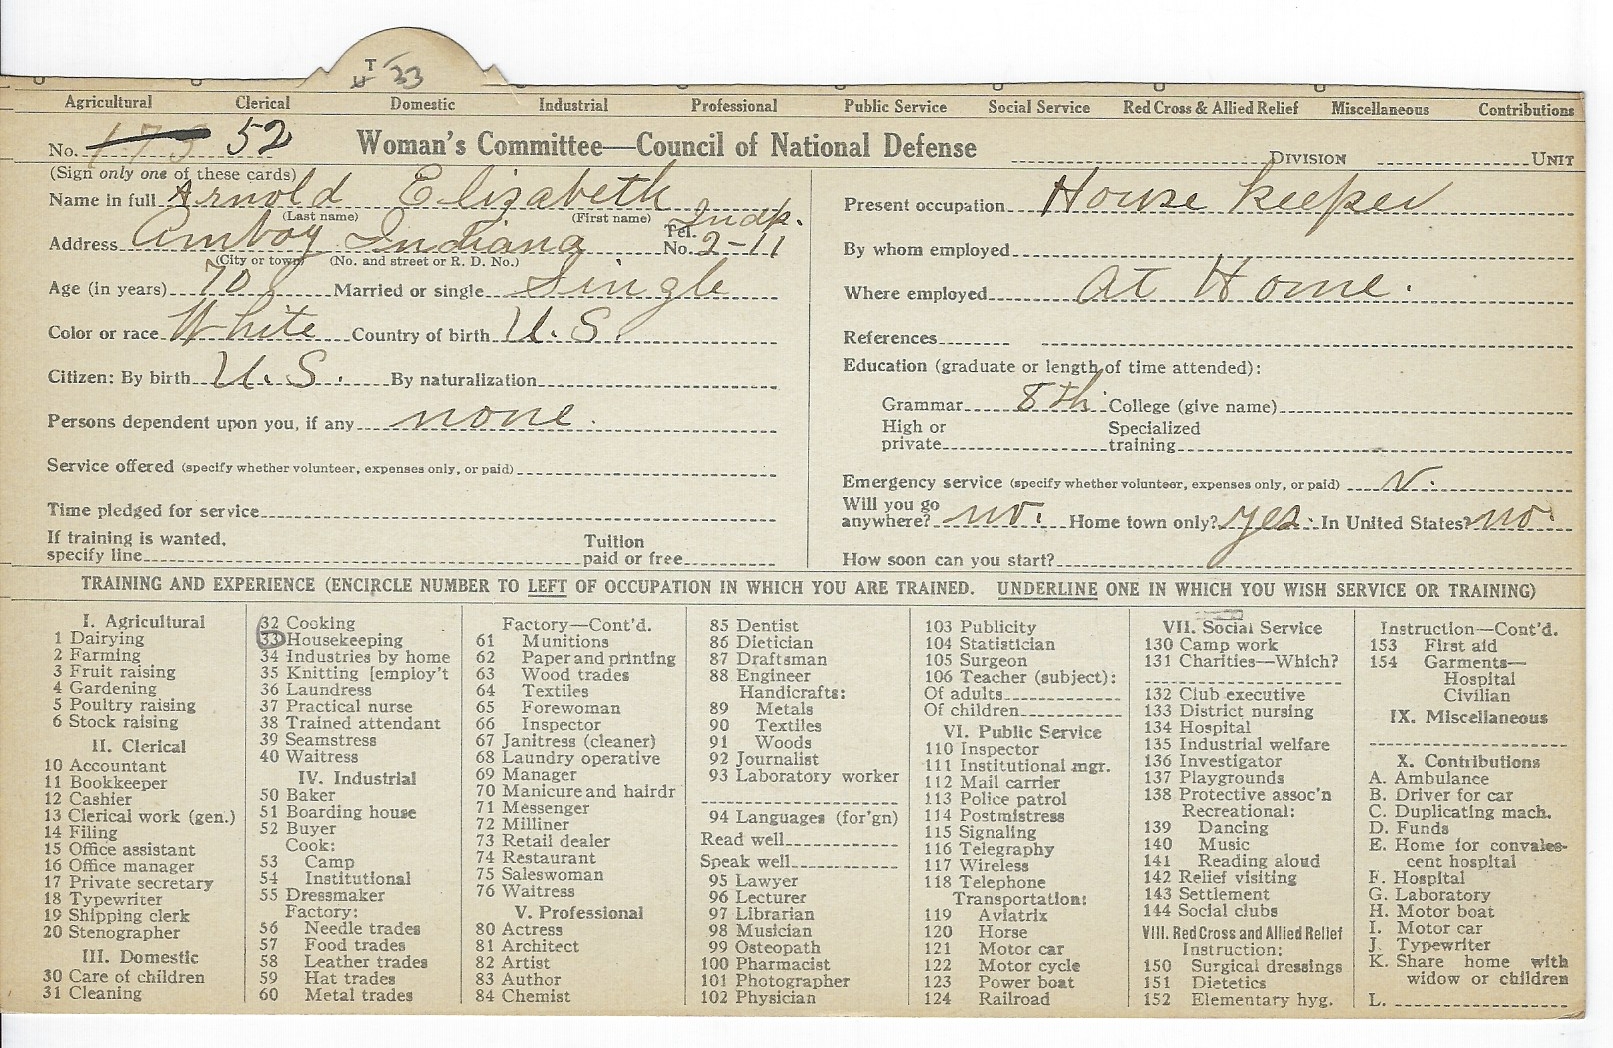 T
33
Agricultural Clerical Domestic Industrial Professional Public Service Social Service Red Cross & Allied Relief Miscellaneous Contributions
No. 173 52 Woman's Committee—Council of National Defense DIVISION UNIT
(Sign only one of these cards)
Name in full Arnold Elizabeth
(Last name) (First name)
Address Amboy Indiana Tel. No. Indp. 2-11
(City or town) (No. and street or R. D. No.)
Age (in years) 70 Married or single Single
Color or race White Country of birth U.S
Citizen: By birth U.S. By naturalization
Persons dependent upon you, if any none.
Service offered (specify whether volunteer, expenses only, or paid)
Time pledged for service
If training is wanted, specify line Tuition paid or free
Present occupation House keeper
By whom employed
Where employed at Home.
References
Education (graduate or length of time attended):
Grammar 8th. College (give name)
High or private Specialized training
Emergency service (specify whether volunteer, expenses only, or paid) v.
Will you go anywhere? no. Home town only? yes. In United States? no.
How soon can you start?
TRAINING AND EXPERIENCE (ENCIRCLE NUMBER TO LEFT OF OCCUPATION IN WHICH YOU ARE TRAINED. UNDERLINE ONE IN WHICH YOU WISH SERVICE OR TRAINING)
I. Agricultural
1 Dairying
2 Farming
3 Fruit raising
4 Gardening
5 Poultry raising
6 Stock raising
II. Clerical
10 Accountant
11 Bookkeeper
12 Cashier
13 Clerical work (gen.)
14 Filing
15 Office assistant
16 Office manager
17 Private secretary
18 Typewriter
19 Shipping clerk
20 Stenographer
III. Domestic
30 Care of children
31 Cleaning
32 Cooking
33 Housekeeping
34 Industries by home
35 Knitting [employ't
36 Laundress
37 Practical nurse
38 Trained attendant
39 Seamstress
40 Waitress
IV. Industrial
50 Baker
51 Boarding house
52 Buyer
Cook:
53 Camp
54 Institutional
55 Dressmaker
Factory:
56 Needle trades
57 Food trades
58 Leather trades
59 Hat trades
60 Metal trades
Factory—Cont'd.
61 Munitions
62 Paper and printing
63 Wood trades
64 Textiles
65 Forewoman
66 Inspector
67 Janitress (cleaner)
68 Laundry operative
69 Manager
70 Manicure and hairdr
71 Messenger
72 Milliner
73 Retail dealer
74 Restaurant
75 Saleswoman
76 Waitress
V. Professional
80 Actress
81 Architect
82 Artist
83 Author
84 Chemist
85 Dentist
86 Dietician
87 Draftsman
88 Engineer
Handicrafts:
89 Metals
90 Textiles
91 Woods
92 Journalist
93 Laboratory worker
94 Languages (for'gn)
Read well
Speak well
95 Lawyer
96 Lecturer
97 Librarian
98 Musician
99 Osteopath
100 Pharmacist
101 Photographer
102 Physician
103 Publicity
104 Statistician
105 Surgeon
106 Teacher (subject):
Of adults
Of children
VI. Public Service
110 Inspector
111 Institutional mgr.
112 Mail carrier
113 Police patrol
114 Postmistress
115 Signaling
116 Telegraphy
117 Wireless
118 Telephone
Transportation:
119 Aviatrix
120 Horse
121 Motor car
122 Motor cycle
123 Power boat
124 Railroad
VII. Social Service
130 Camp work
131 Charities—Which?
132 Club executive
133 District nursing
134 Hospital
135 Industrial welfare
136 Investigator
137 Playgrounds
138 Protective assoc'n
Recreational:
139 Dancing
140 Music
141 Reading aloud
142 Relief visiting
143 Settlement
144 Social clubs
VIII. Red Cross and Allied Relief
Instruction:
150 Surgical dressings
151 Dietetics
152 Elementary hyg.
Instruction—Cont'd.
153 First aid
154 Garments—
Hospital
Civilian
IX. Miscellaneous
X. Contributions
A. Ambulance
B. Driver for car
C. Duplicating mach.
D. Funds
E. Home for convales-
cent hospital
F. Hospital
G. Laboratory
H. Motor boat
I. Motor car
J. Typewriter
K. Share home with
widow or children
L.